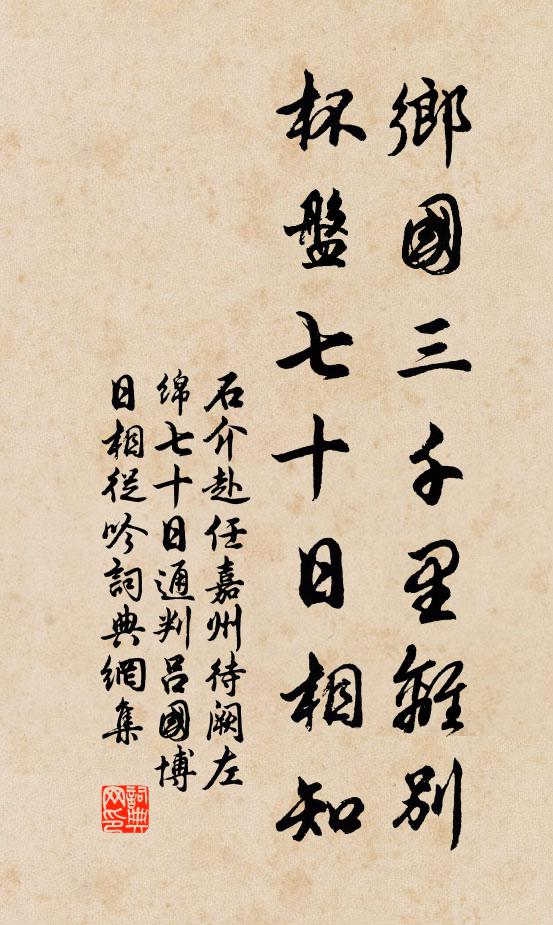 鄉國三千里離別
杯盤七十日相知
石介赴任嘉州待闕左
綿七十日通判呂國博
日相從吟詞典網集
詞典
网印